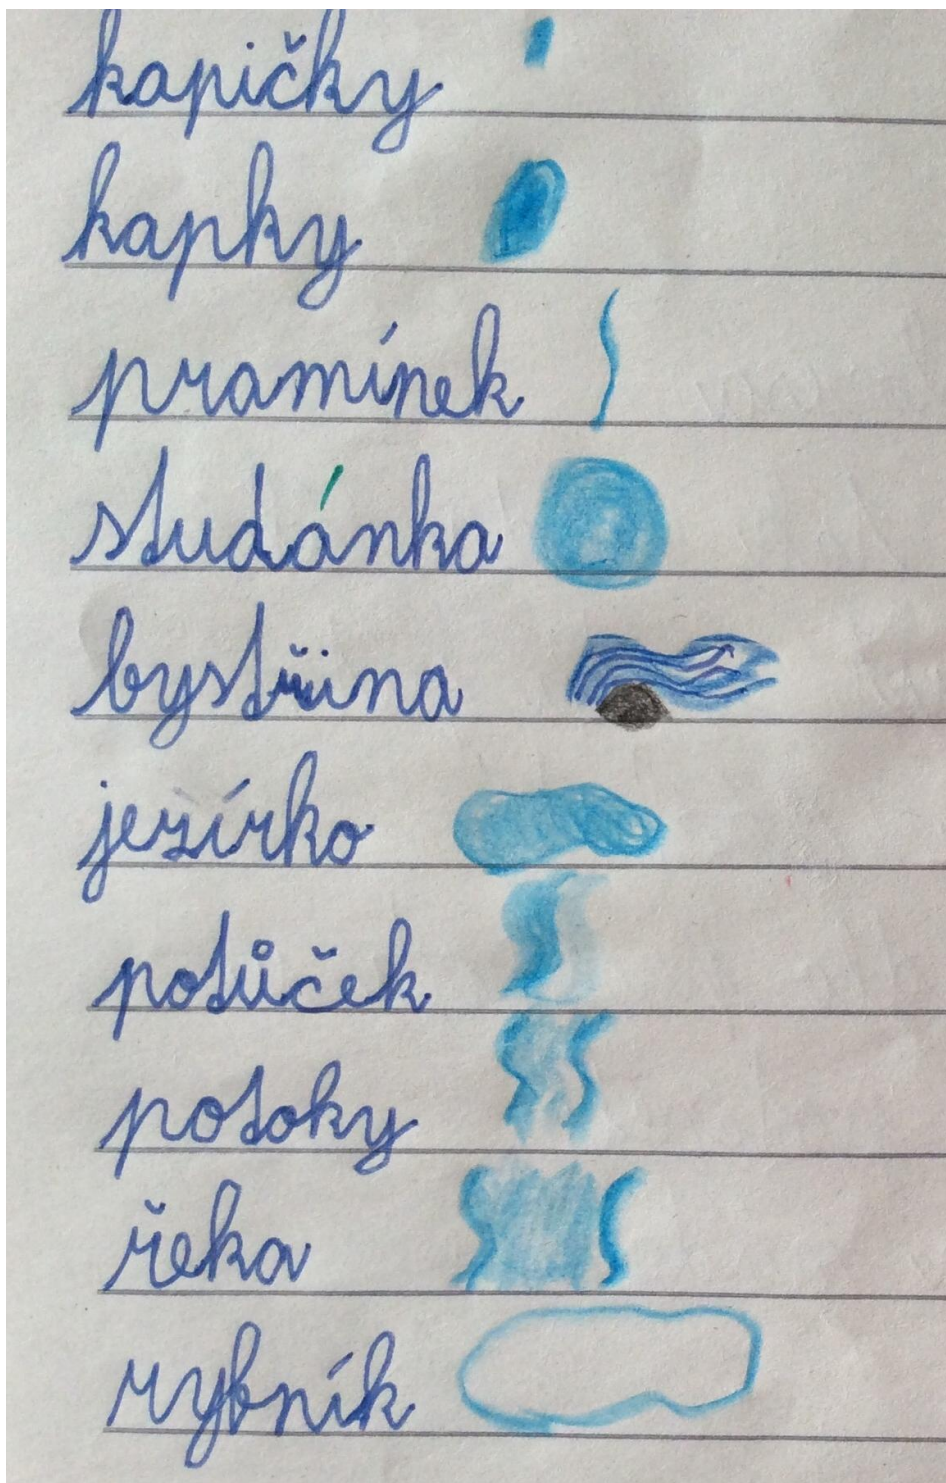 kapičky
kapky
pramínek
studánka
bystřina
jezírko
potůček
potoky
řeka
rybník